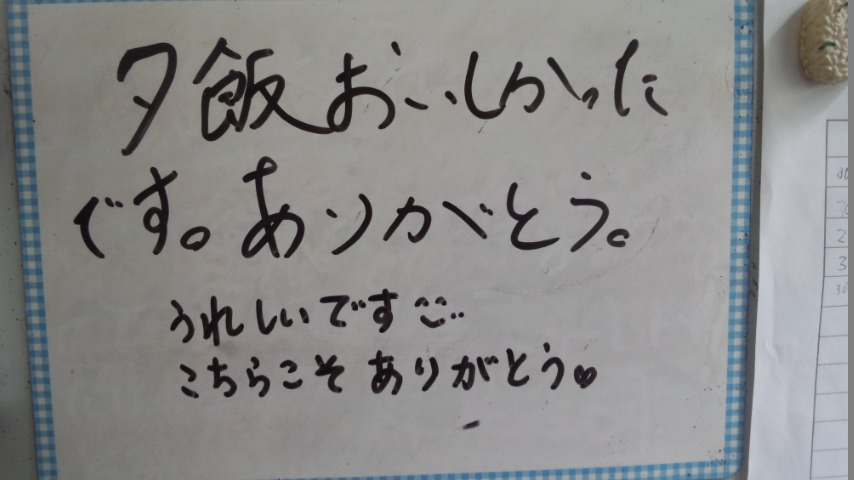 夕飯おいしかった
です。ありがとう。
うれしいです
こちらこそありがとう♥